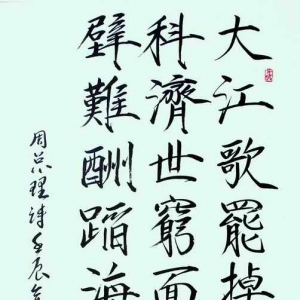 大江歌罷掉
科濟世窮面
壁難酬蹈海
周总理詩壬辰